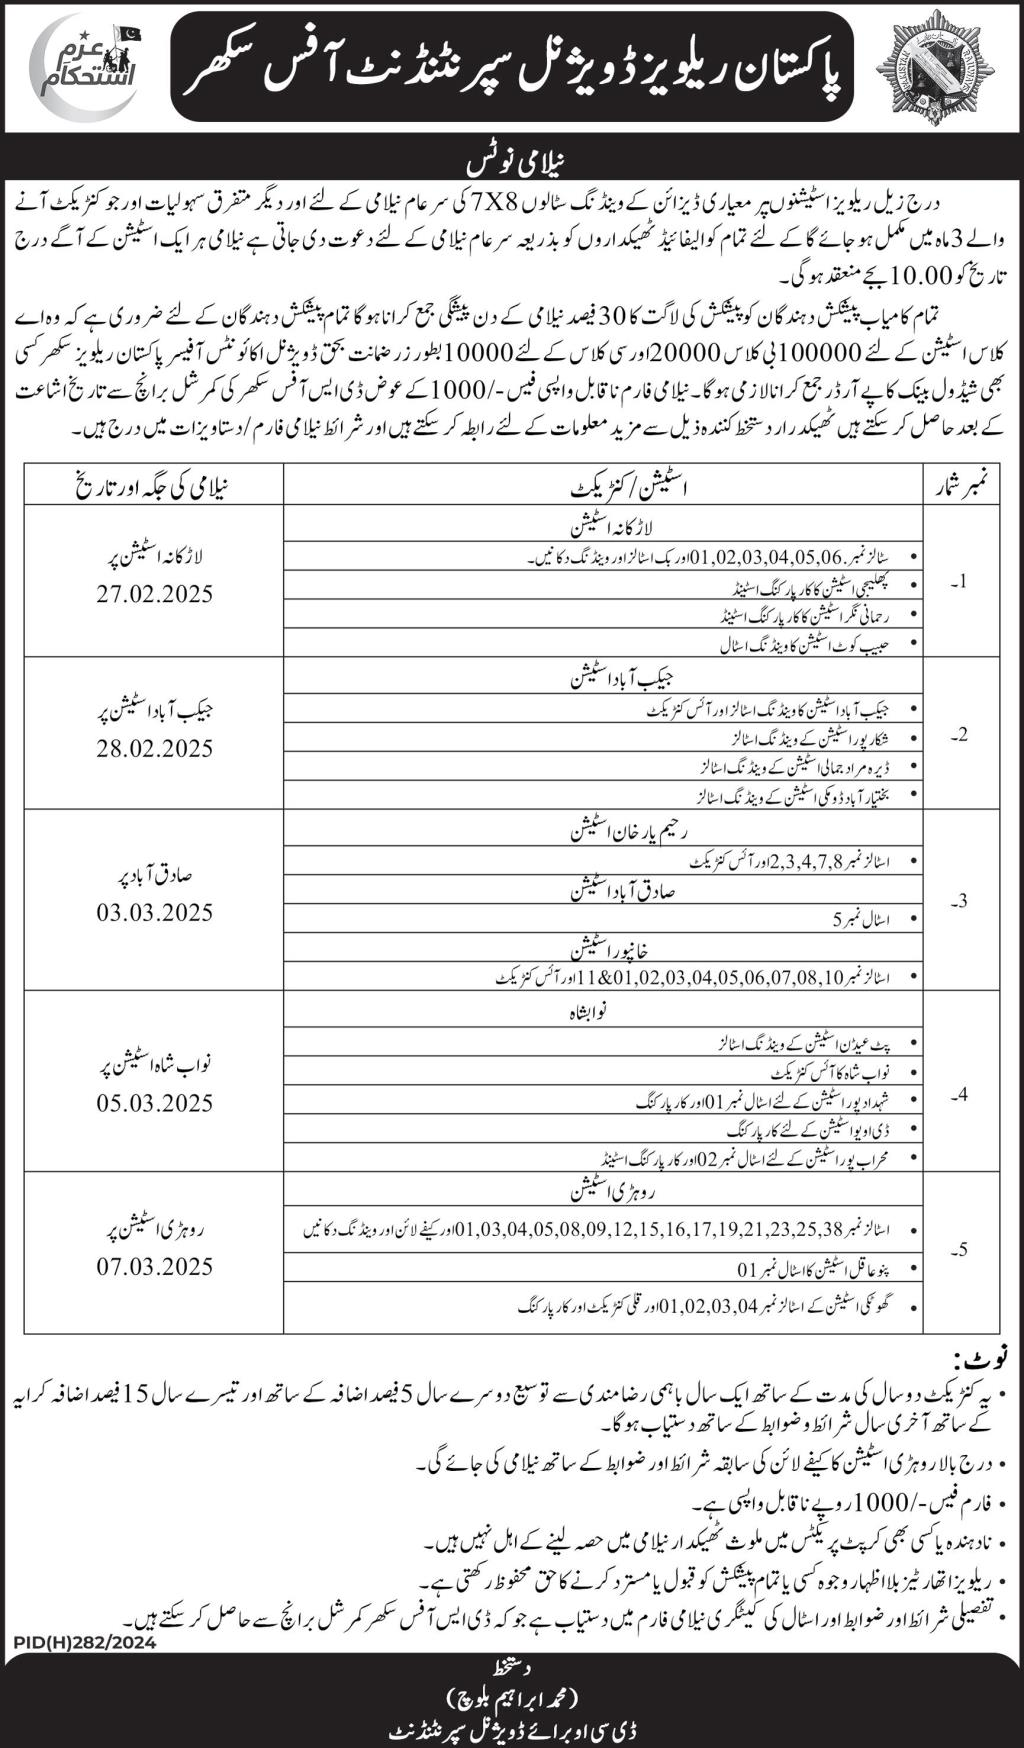 عزم
استحکام
پاکستان ریلویز ڈویژنل سپرنٹنڈنٹ آفس سکھر
PAKISTAN RAILWAYS
نیلامی نوٹس
درج زیل ریلویز اسٹیشنوں پر معیاری ڈیزائن کے وینڈنگ سٹالوں 7X8 کی سرعام نیلامی کے لئے اور دیگر متفرق سہولیات اور جو کنٹریکٹ آنے
والے 3 ماہ میں مکمل ہو جائے گا کے لئے تمام کوالیفائیڈ ٹھیکداروں کو بذریعہ سرعام نیلامی کے لئے دعوت دی جاتی ہے نیلامی ہر ایک اسٹیشن کے آگے درج
تاریخ کو 10.00 بجے منعقد ہو گی۔
تمام کامیاب پیشکش دہندگان کو پیشکش کی لاگت کا 30 فیصد نیلامی کے دن پیشگی جمع کرانا ہو گا تمام پیشکش دہندگان کے لئے ضروری ہے کہ وہ اے
کلاس اسٹیشن کے لئے 100000 بی کلاس 20000 اور سی کلاس کے لئے 10000 بطور زر ضمانت بحق ڈویژنل اکائونٹس آفیسر پاکستان ریلویز سکھر کسی
بھی شیڈول بینک کا پے آرڈر جمع کرانا لازمی ہو گا۔ نیلامی فارم ناقابل واپسی فیس -/1000 کے عوض ڈی ایس آفس سکھر کی کمرشل برانچ سے تاریخ اشاعت
کے بعد حاصل کر سکتے ہیں ٹھیکدرار دستخط کنندہ ذیل سے مزید معلومات کے لئے رابطہ کر سکتے ہیں اور شرائط نیلامی فارم/دستاویزات میں درج ہیں۔
نمبر شمار
اسٹیشن/کنٹریکٹ
نیلامی کی جگہ اور تاریخ
1۔
لاڑکانہ اسٹیشن
• سٹالز نمبر .01,02,03,04,05,06 اور بک اسٹالز اور وینڈنگ دکانیں۔
• پھلیجی اسٹیشن کا کار پارکنگ اسٹینڈ
• رحمانی نگر اسٹیشن کا کار پارکنگ اسٹینڈ
• حبیب کوٹ اسٹیشن کا وینڈنگ اسٹال
لاڑکانہ اسٹیشن پر
27.02.2025
2۔
جیکب آباد اسٹیشن
• جیکب آباد اسٹیشن کا وینڈنگ اسٹالز اور آئس کنٹریکٹ
• شکارپور اسٹیشن کے وینڈنگ اسٹالز
• ڈیرہ مراد جمالی اسٹیشن کے وینڈنگ اسٹالز
• بختیار آباد ڈومکی اسٹیشن کے وینڈنگ اسٹالز
جیکب آباد اسٹیشن پر
28.02.2025
3۔
رحیم یار خان اسٹیشن
• اسٹالز نمبر 2,3,4,7,8 اور آئس کنٹریکٹ
صادق آباد اسٹیشن
• اسٹال نمبر 5
خانپور اسٹیشن
• اسٹالز نمبر 01,02,03,04,05,06,07,08,10&11 اور آئس کنٹریکٹ
صادق آباد پر
03.03.2025
4۔
نوابشاہ
• پٹ عیدن اسٹیشن کے وینڈنگ اسٹالز
• نواب شاہ کا آئس کنٹریکٹ
• شہداد پور اسٹیشن کے لئے اسٹال نمبر 01 اور کار پارکنگ
• ڈی او یو اسٹیشن کے لئے کار پارکنگ
• محراب پور اسٹیشن کے لئے اسٹال نمبر 02 اور کار پارکنگ اسٹینڈ
نواب شاہ اسٹیشن پر
05.03.2025
5۔
روہڑی اسٹیشن
• اسٹالز نمبر 01,03,04,05,08,09,12,15,16,17,19,21,23,25,38 اور کیفے لائن اور وینڈنگ دکانیں
• پنو عاقل اسٹیشن کا اسٹال نمبر 01
• گھوٹکی اسٹیشن کے اسٹالز نمبر 01,02,03,04 اور قلی کنٹریکٹ اور کار پارکنگ
روہڑی اسٹیشن پر
07.03.2025
نوٹ:
• یہ کنٹریکٹ دو سال کی مدت کے ساتھ ایک سال باہمی رضامندی سے توسیع دوسرے سال 5 فیصد اضافہ کے ساتھ اور تیسرے سال 15 فیصد اضافہ کرایہ
کے ساتھ آخری سال شرائط و ضوابط کے ساتھ دستیاب ہو گا۔
• درج بالا روہڑی اسٹیشن کا کیفے لائن کی سابقہ شرائط اور ضوابط کے ساتھ نیلامی کی جائے گی۔
• فارم فیس -/1000 روپے ناقابل واپسی ہے۔
• نادہندہ یا کسی بھی کرپٹ پریکٹس میں ملوث ٹھیکدار نیلامی میں حصہ لینے کے اہل نہیں ہیں۔
• ریلویز اتھارٹیز بلا اظہار وجوہ کسی یا تمام پیشکش کو قبول یا مسترد کرنے کا حق محفوظ رکھتی ہے۔
• تفصیلی شرائط اور ضوابط اور اسٹال کی کیٹگری نیلامی فارم میں دستیاب ہے جو کہ ڈی ایس آفس سکھر کمرشل برانچ سے حاصل کر سکتے ہیں۔
PID(H)282/2024
دستخط
(محمد ابراہیم بلوچ)
ڈی سی او برائے ڈویژنل سپرنٹنڈنٹ